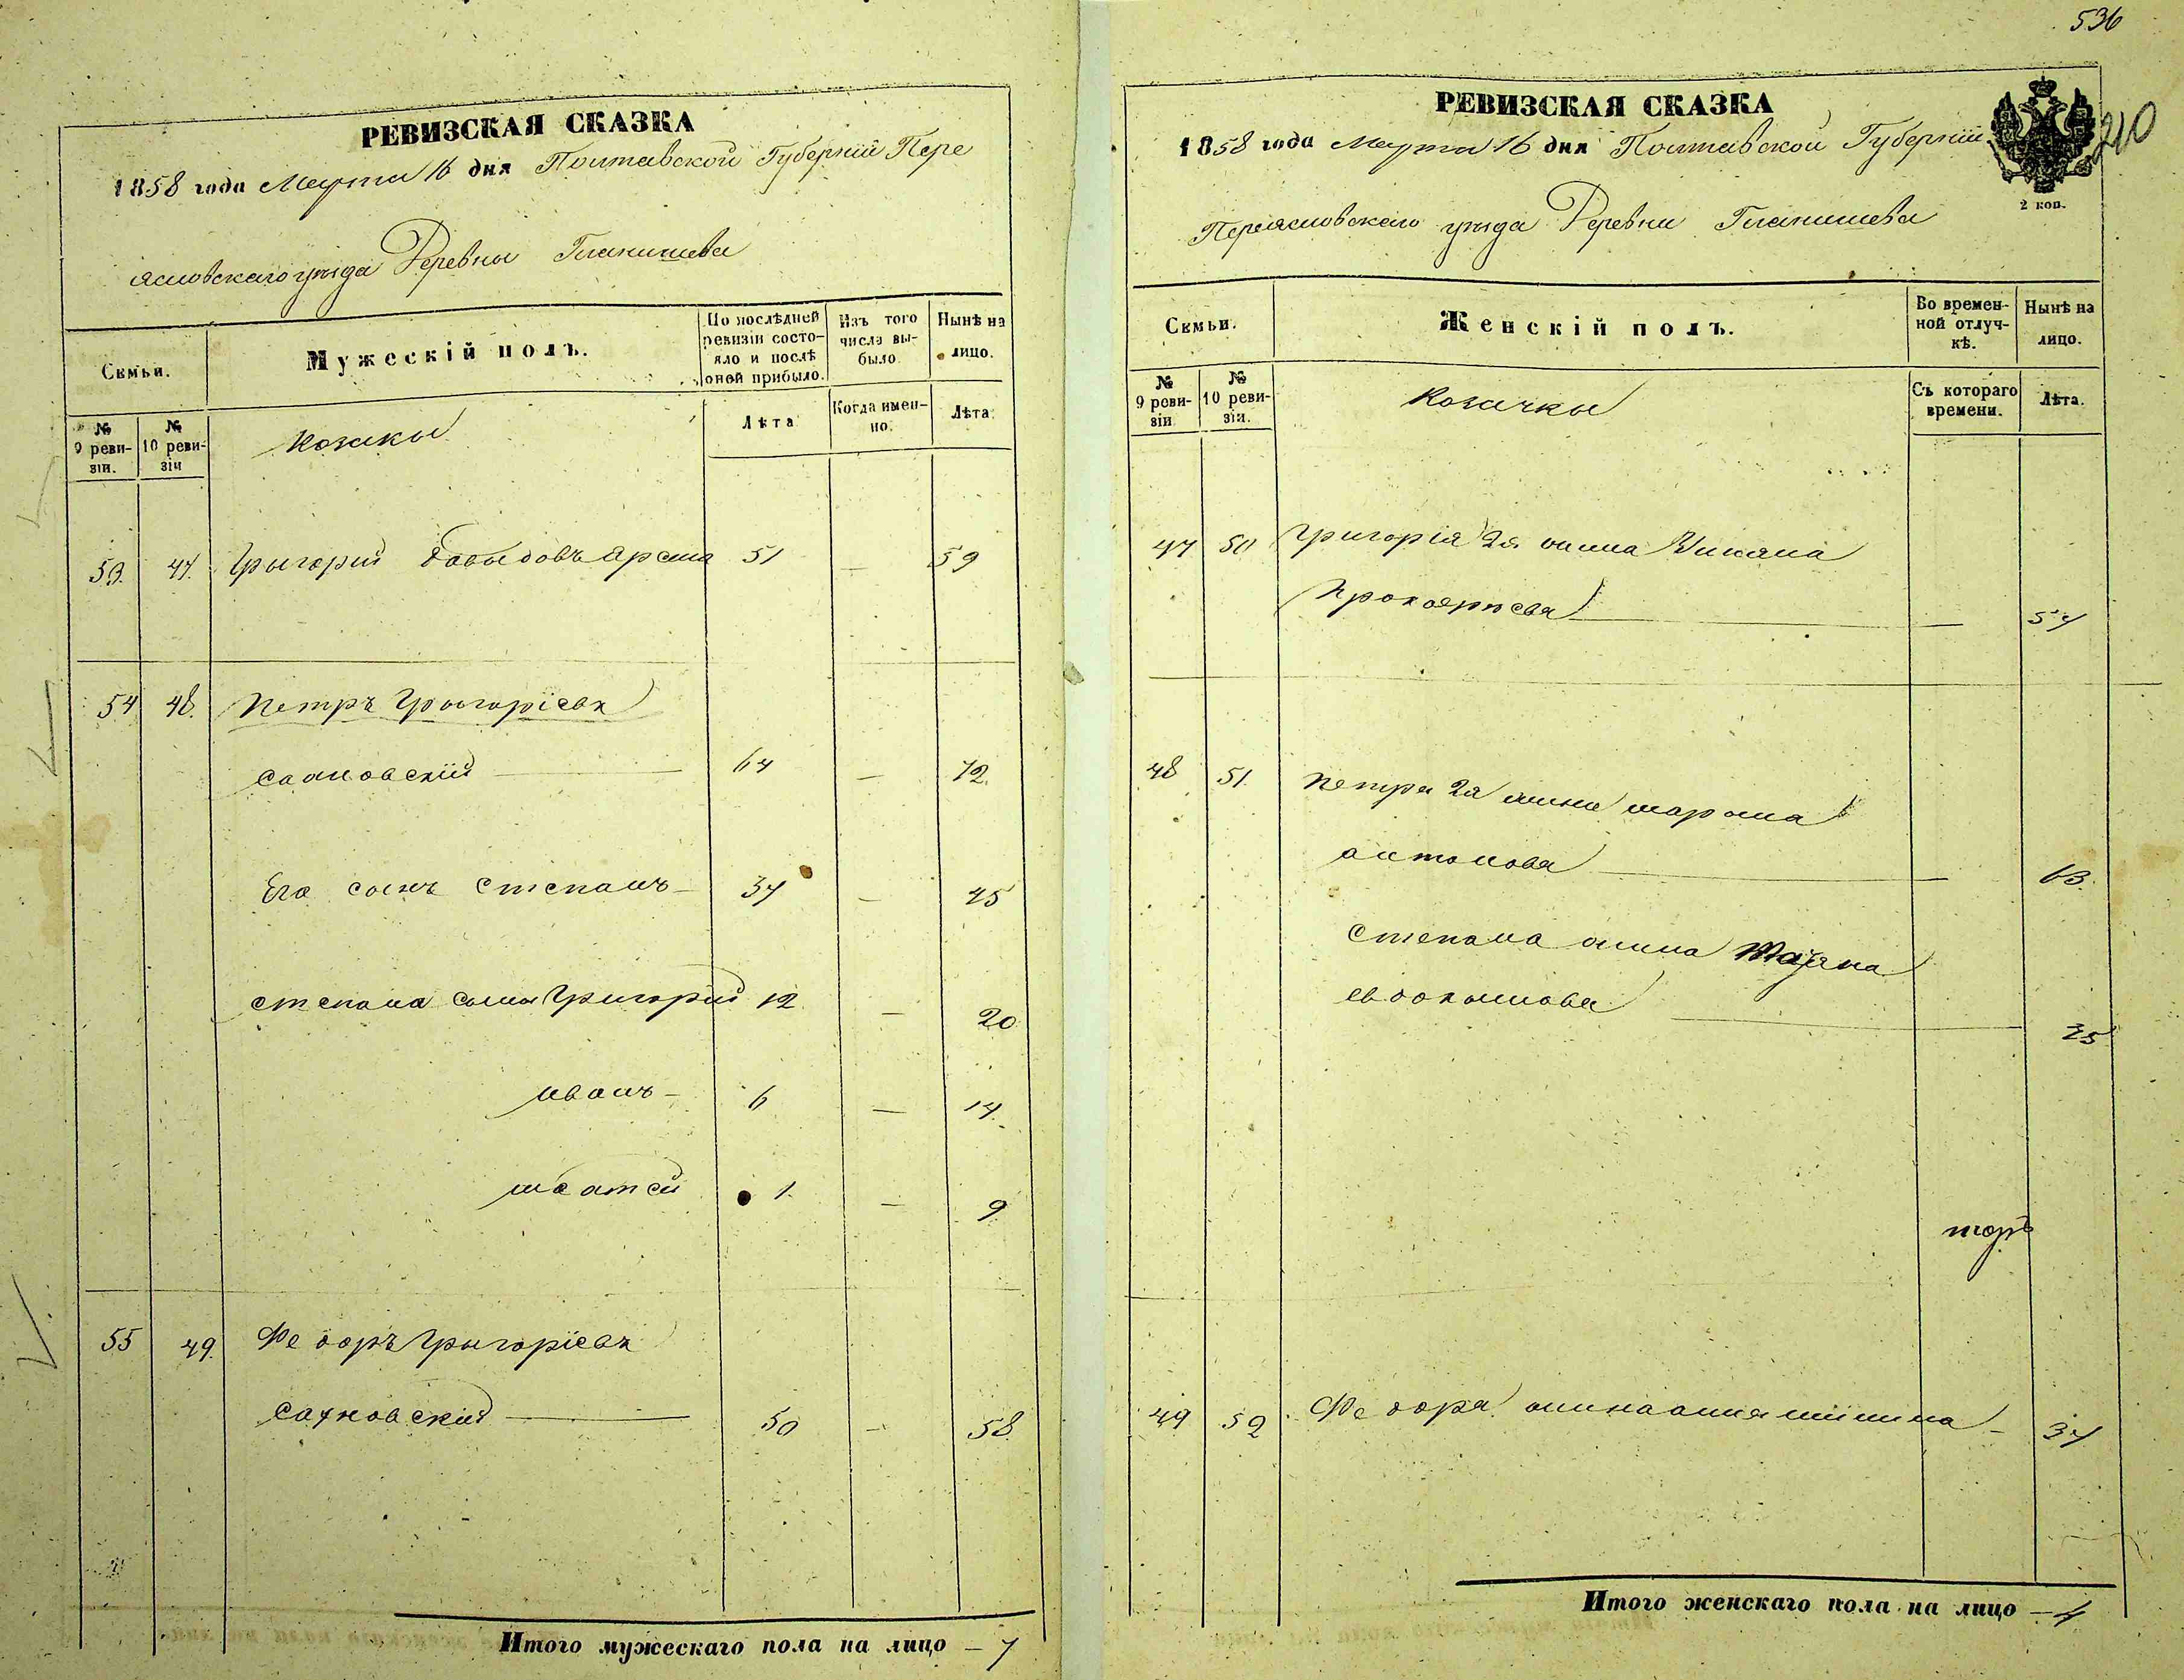 536
РЕВИЗСКАЯ СКАЗКА
1858 года Марта 16 дня Полтавской Губерніи Пере
яславскаго уѣзда Деревни
Семьи.
Мужескій полъ.
По послѣдней ревизіи состо-
яло и послѣ
оной прибыло.
Изъ того
числа вы-
было.
Нынѣ на
лицо.
№
9 реви-
зіи.
№
10 реви-
зіи
Козаки
Лѣта
Когда имен-
но.
Лѣта
53. 47. Григорий Давыдовъ 51 — 59
54 48. Петръ Григоріевъ
Сахновскій — 64 — 72.
Его сынъ Степанъ — 37 — 45
Степана сыны Григорий 12 — 20
Иванъ — 6 — 14.
1. — 9
55 49. Федоръ Григоріевъ
Сахновскій — 50 — 58.
Итого мужескаго пола на лицо — 7
РЕВИЗСКАЯ СКАЗКА
1858 года Марта 16 дня Полтавской Губерніи
210
2 коп.
Переяславскаго уѣзда Деревни
Семьи.
Женскій полъ.
Во времен-
ной отлуч-
кѣ.
Нынѣ на
лицо.
№
9 реви-
зіи.
№
10 реви-
зіи.
Козачки
Съ котораго
времени.
Лѣта.
47 50 Григорія 2я жина
Прокофьева — — 57
48 51. Петра 2я жина
Антонова — — 63.
Степана жина
Евдокимова — 35
49 52 Федора жина — 37
Итого женскаго пола на лицо — 4